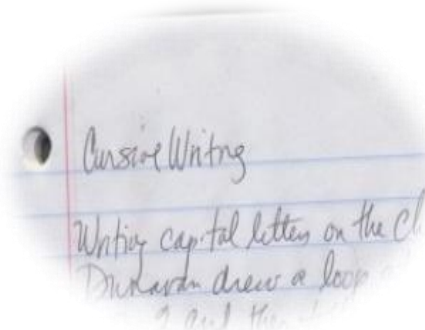 Cursive Writing
Writing capital letters on the
drew a loop
and the